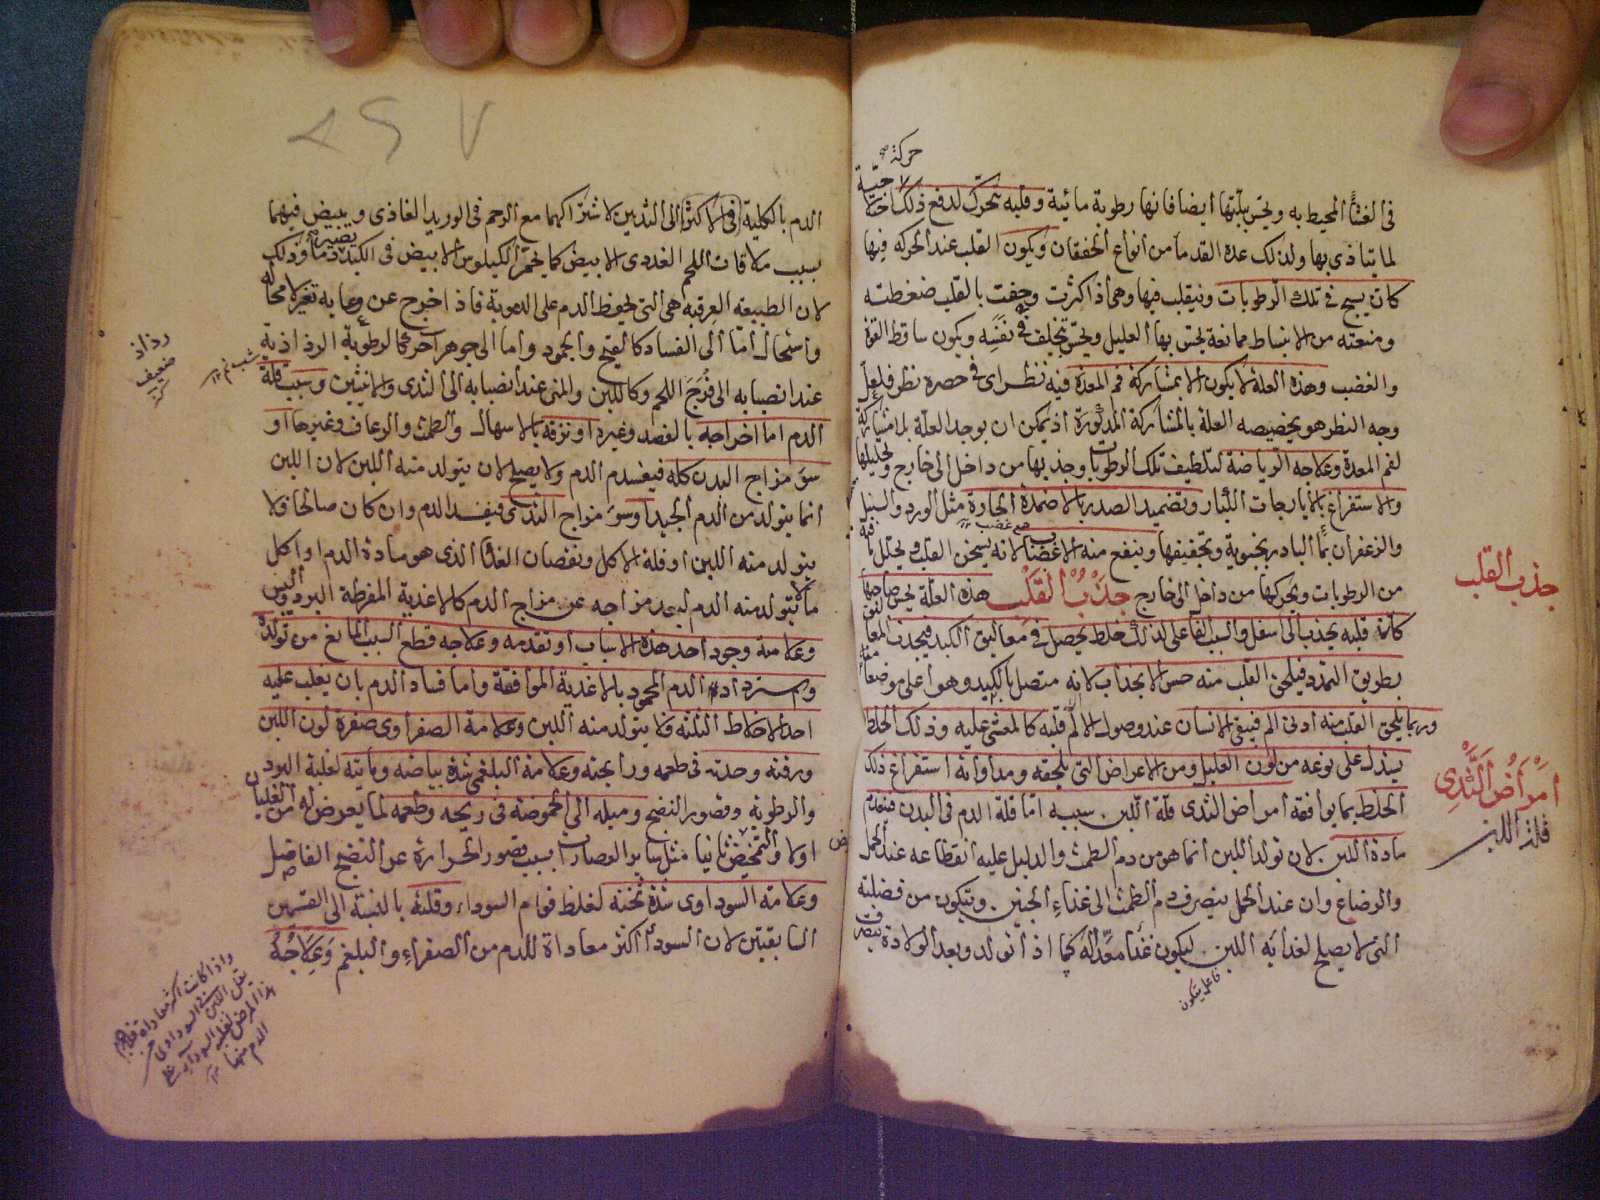 حركة صح
في الغشاء المحيط به ويحس ببلتها ايضا فانها رطوبة مائية وقلبه يتحرك لدفع ذلك
لما يتاذى بها ولذلك عده القدماء من انواع الخفقان ويكون القلب عند الحركه فيها
كانه يسبح في تلك الرطوبات وينقلب فيها وهي اذا كثرت وحفت بالقلب ضغطته
ومنعته من الانبساط ممانعة يحس بها العليل ويحس بتخلف في نفسه ويكون ساقط القوة
والغضب وهذه العلة لا يكون الا بمشاركة فم المعدة فيه نظر اي في حصره نظر فلعل
وجه النظر هو تخصيصه العلة بالمشاركة المذكورة اذ يمكن ان يوجد العلة بلا مشاركة
لفم المعدة وعلاجه الرياضة لتلطيف تلك الرطوبات وجذبها من داخل الى خارج وتحليلها
والاستفراغ بالايارجات الكبار وتضميد الصدر بالاضمدة الحارة مثل الورد والسنبل
والزعفران بماء البادرنجبوية وتجفيفها وينفع منه الاغضاب لانه يسخن القلب ويحلل ما فيه
من الرطوبات ويحركها من داخل الى خارج جذب القلب هذه العلة يحس صاحبها
كان قلبه يجذب الى اسفل والسبب الفاعلي لذلك خلط يحصل في معاليق الكبد فيجذب
بطريق التمدد فيلحق القلب منه حس الانجذاب لانه متصل بالكبد وهو اعلى موضعا
وربما يلحق القلب منه ادنى الم فيبقى الانسان عند وصول الالم قلبه كالمغشى عليه وذلك الخلط
يستدل على نوعه من لون العليل ومن الاعراض التي يلحقه ومداواته استفراغ ذلك
الخلط بما يوافقه امراض الثدى قلة اللبن سببه اما قلة الدم في البدن فيعدم
مادة اللبن لان تولد اللبن انما هو من دم الطمث والدليل عليه انقطاعه عند الحمل
والرضاع وان عند الحمل ينصرف دم الطمث الى غذاء الجنين ويتكون من فضلته
التي لا يصلح لغذائه اللبن ليكون غذاء معدا له كما اذا تولد وبعد الولادة ينصرف
فاعل يتكون
جذب القلب
امراض الثدى
قلة اللبن
الدم بالكلية في الاكثر الى الثديين لاشتراكهما مع الرحم في الوريد الغاذى ويبيض فيهما
بسبب ملاقات اللحم الغددى الابيض كما يحمر الكيلوس الابيض في الكبد يصير دما وذلك
لان الطبيعه العرقيه هي التي يحفظ الدم على الدموية فاذا خرج عن وعايه تغير لا محالة
واستحال اما الى الفساد كالقيح والجمود واما الى جوهر آخر كالرطوبة الرذاذية
عند انصبابه الى فرج اللحم وكاللبن والمنى عند انصبابه الى الثدى والانثيين وسبب قلة
الدم اما اخراجه بالفصد وغيره او نزفه بالاسهال والطمث والرعاف وغيرها او
سوء مزاج البدن كله فيفسد الدم ولا يصلح لان يتولد منه اللبن لان اللبن
انما يتولد من الدم الجيد او سوء مزاج الثدى فيفسد الدم وان كان صالحا فلا
يتولد منه اللبن او قلة الاكل ونقصان الغذاء الذى هو مادة الدم او اكل
ما لا يتولد منه الدم لبعد مزاجه عن مزاج الدم كالاغذية المفرطة البرد واليبس
وعلامته وجود احد هذه الاسباب او تقدمه وعلاجه قطع السبب المانع من تولده
واسترداد الدم المحمود بالاغذية الموافقة واما فساد الدم بان يغلب عليه
احد الاخلاط الثلثة فلا يتولد منه اللبن وعلامة الصفراوى صفرة لون اللبن
ورقته وحدته في طعمه ورايحته وعلامة البلغمى شدة بياضه ومائيته لغلبة البرد
والرطوبة وقصور النضج وميله الى الحموضة في ريحه وطعمه لما يعرض له من الغليان
اولا والتحمض ثانيا مثل ساير العصارات بسبب قصور الحرارة عن النضج الفاضل
وعلامة السوداوى شدة ثخنه لغلظ قوام السوداء وقلته بالنسبة الى القسمين
السابقين لان السوداء اكثر معاداة للدم من الصفراء والبلغم وعلاجه
رذاذ
ضعيف
واذا كانت اكثر معاداة
يقل اللبن في السوداوى
الدم منها